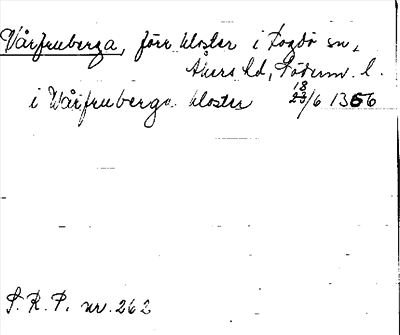 Vårfruberga, förr kloster i Fogdö sn,
Åkers hd, Söderm. l.
i Wårfruberga kloster 18/6 1356
S. R. P. nr. 262